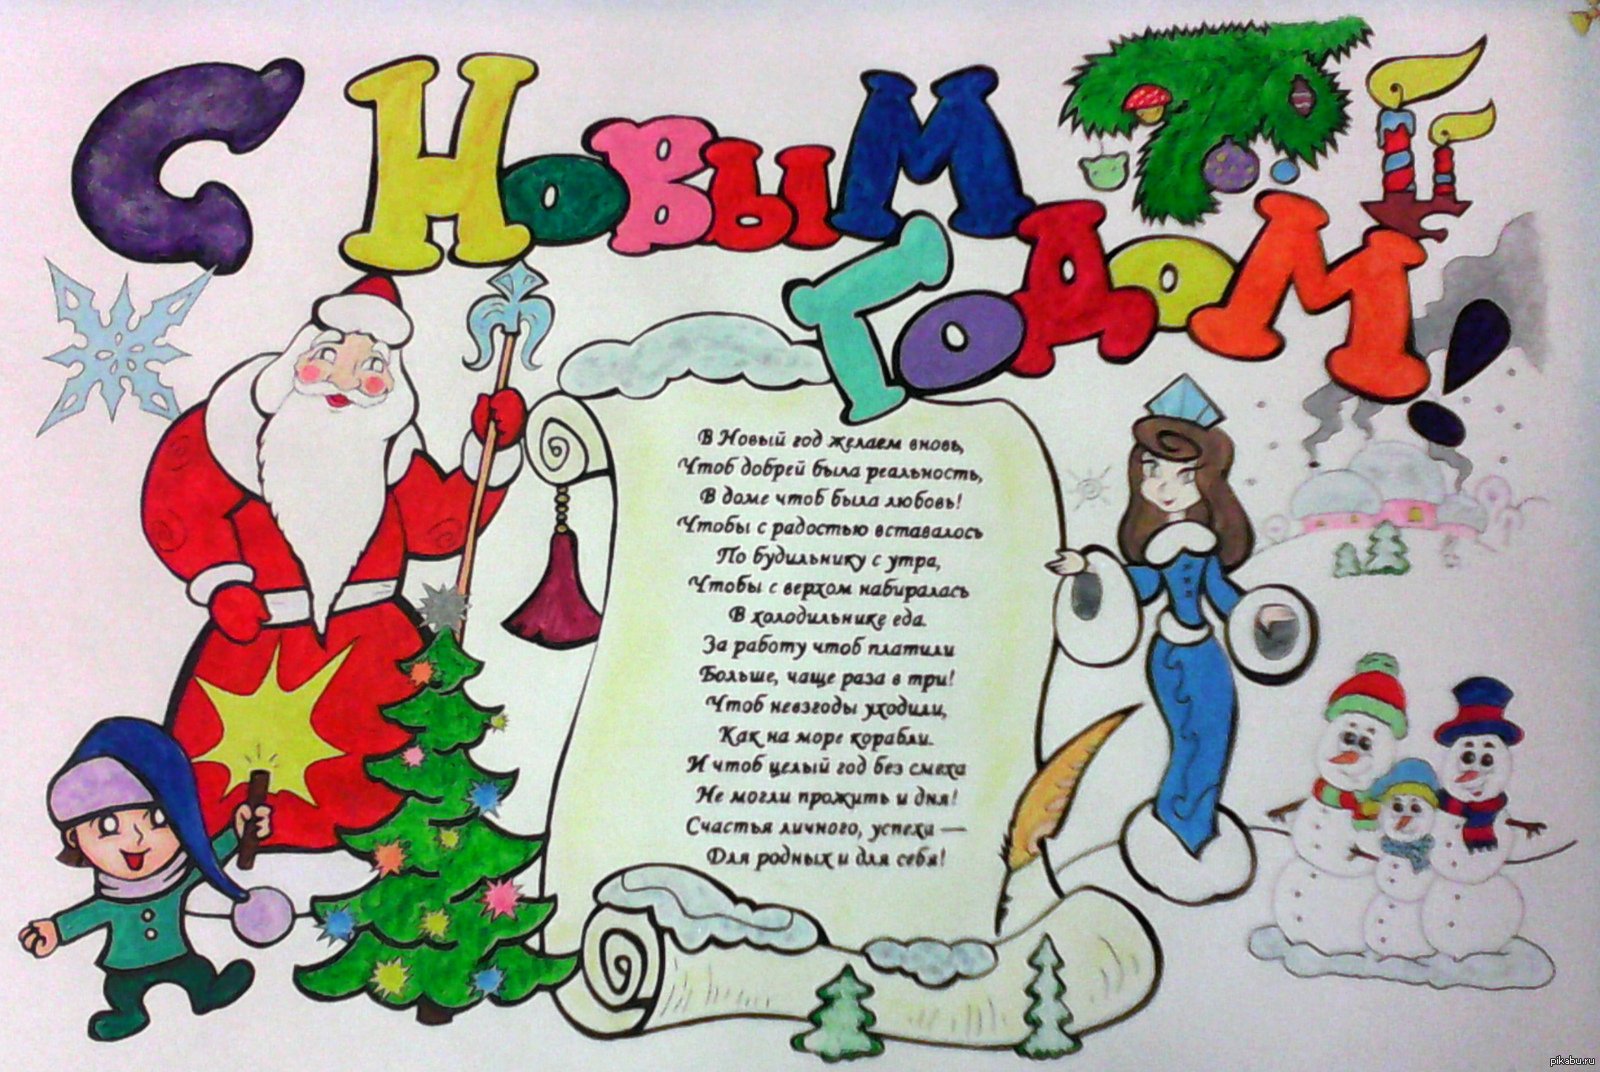 С Новым
Годом!
В Новый год желаем вновь,
Чтоб добрей была реальность,
В доме чтоб была любовь!
Чтобы с радостью вставалось
По будильнику с утра,
Чтобы с верхом набиралась
В холодильнике еда.
За работу чтоб платили
Больше, чаще раза в три!
Чтоб невзгоды уходили,
Как на море корабли.
И чтоб целый год без смеха
Не могли прожить и дня!
Счастья личного, успеха —
Для родных и для себя!
pikabu.ru